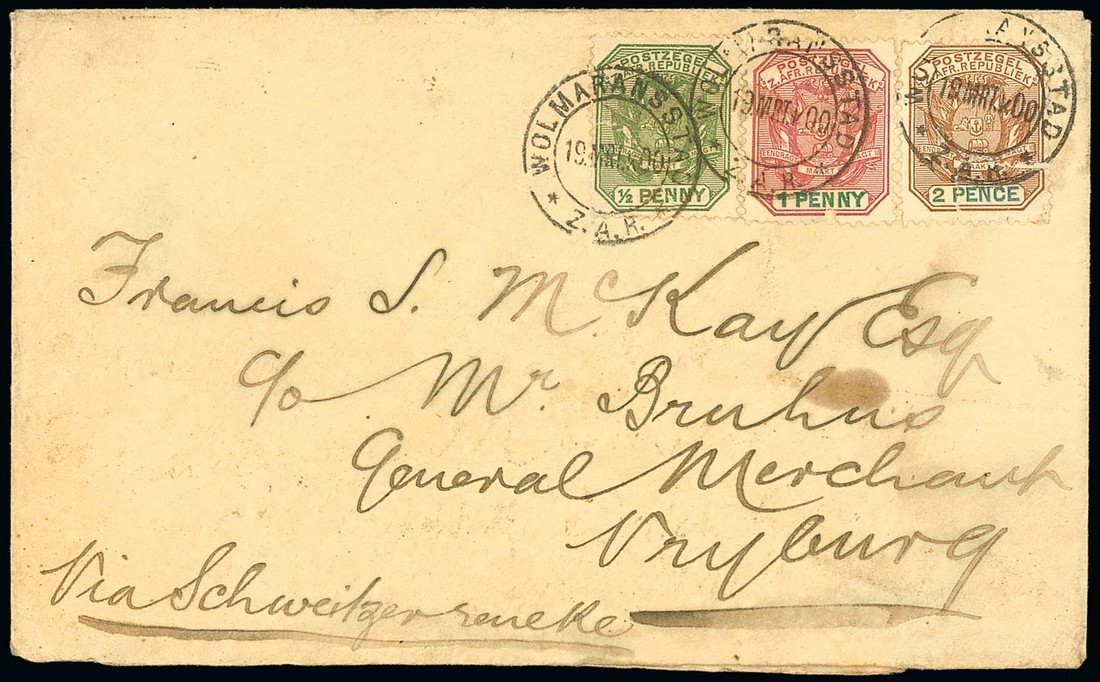 POSTZEGEL
Z.AFR.REPUBLIEK
EENDRAGT MAAKT MAGT
½ PENNY
POSTZEGEL
Z.AFR.REPUBLIEK
EENDRAGT MAAKT MAGT
1 PENNY
POSTZEGEL
Z.AFR.REPUBLIEK
EENDRAGT MAAKT
2 PENCE
WOLMARANSST
19 MRT 00
* Z.A.R. *
19 MRT 00
Z.A.R.
ANSSTAD
19 MRT 00
Z.A.R.
Francis S. McKay Esq
c/o Mr. Bruhns
General Merchant
Vryburg
Via Schweitzer reneke